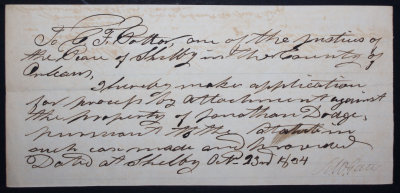 To C. F. Potter, one of the justices of
the Peace of Shelby in the County of
Orleans,
I hereby make application
for process by attachment against
the property of Jonathan Dodge,
pursuant to the statute in
such case made and provided
Dated at Shelby Oct. 23rd